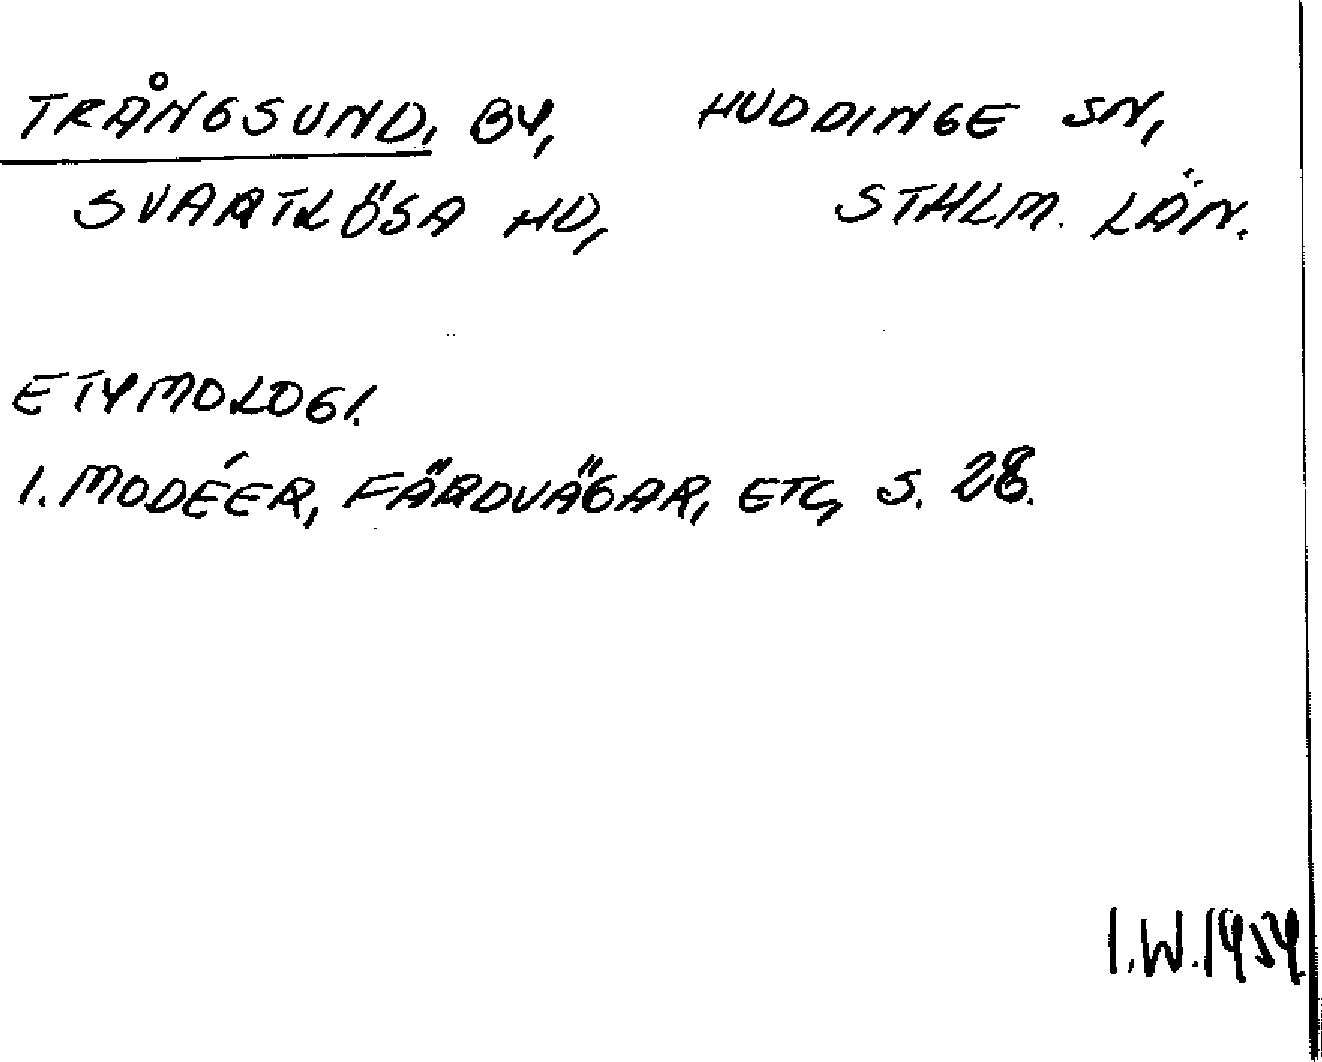 TRÅNGSUND, BY, HUDDINGE SN,
SVARTLÖSA HD, STHLM. LÄN.
ETYMOLOGI.
I. MODÉER, FÄRDVÄGAR, ETC, S. 28.
I.W.1954